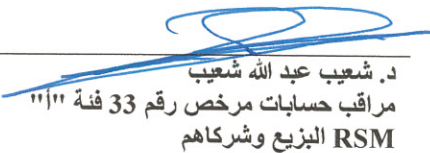 د. شعيب عبد الله شعيب
مراقب حسابات مرخص رقم 33 فئة "أ"
RSM البزيع وشركاهم